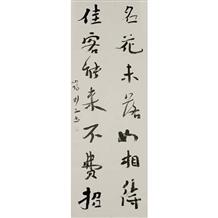 名花未落如相待
佳客能来不費招